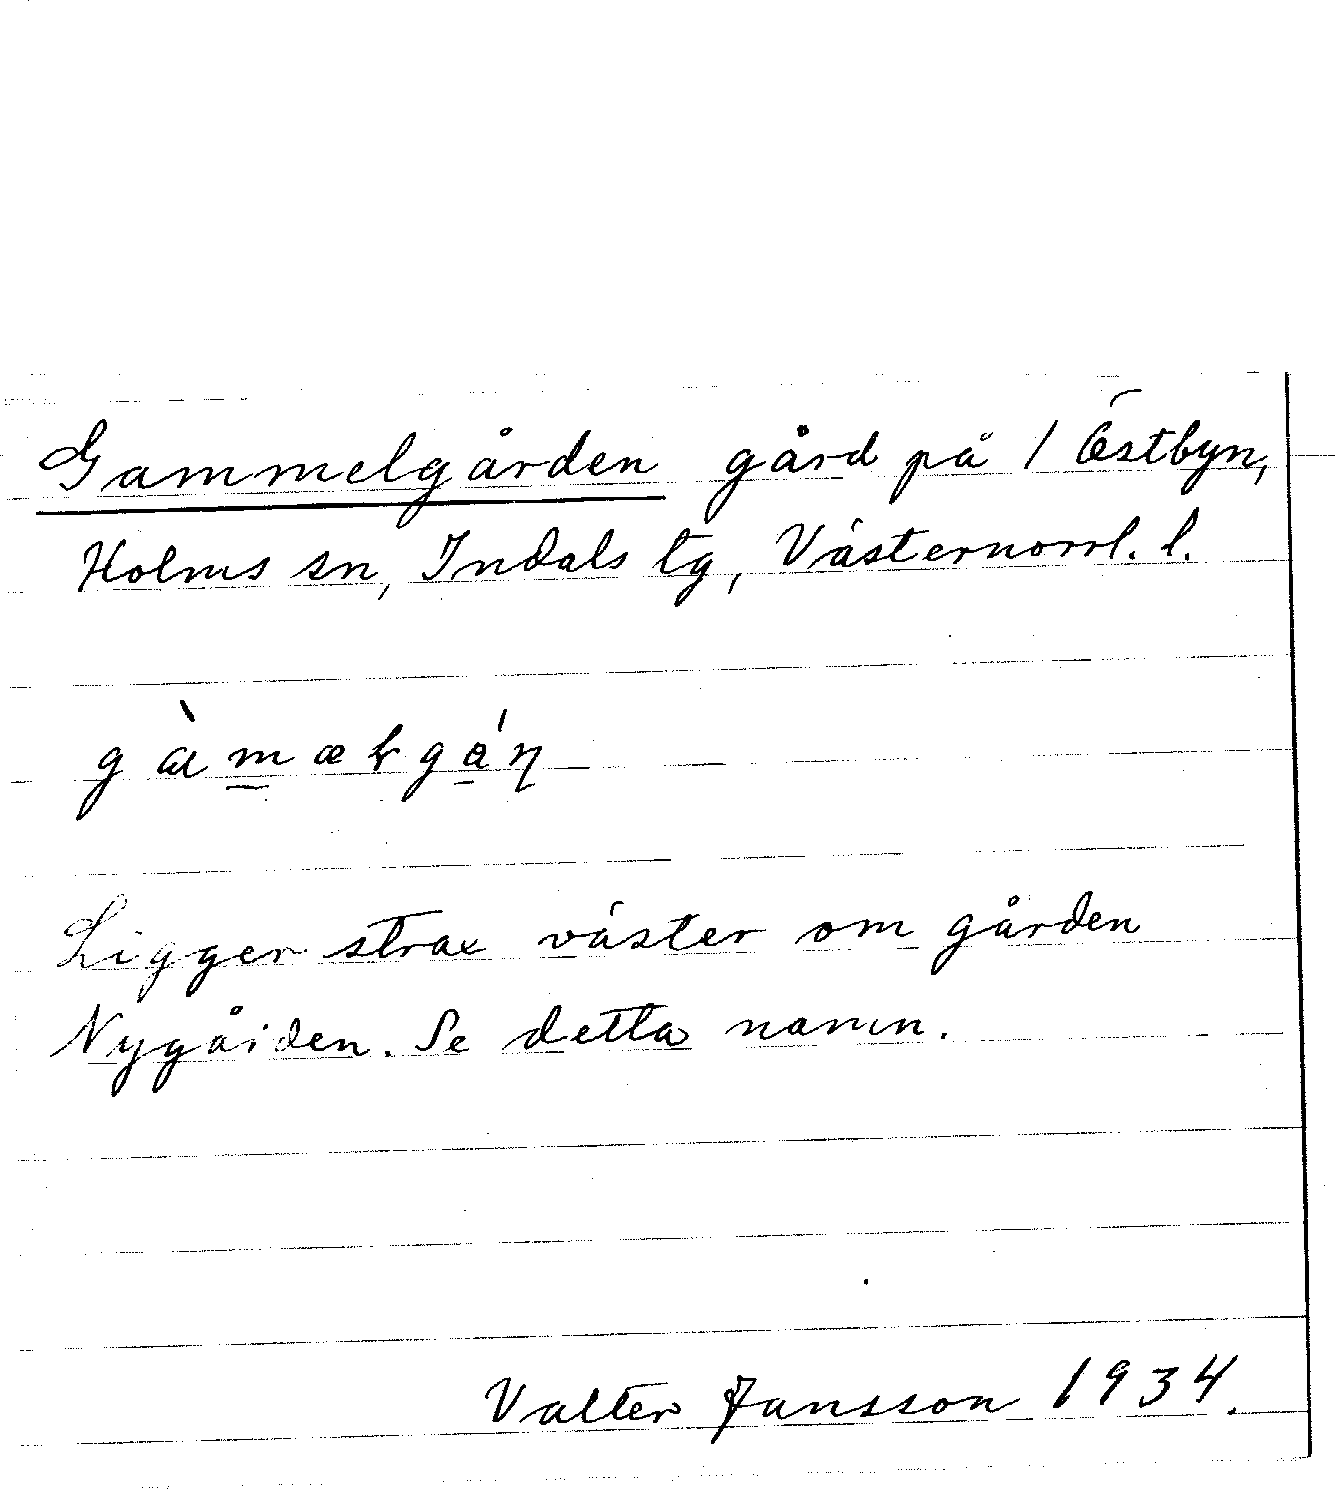 Gammelgården gård på 1 Östbyn,
Holms sn, Indals tg, Västernorrl. l.
Ligger strax väster om gården
Nygården. Se detta namn.
Valter Jansson 1934.